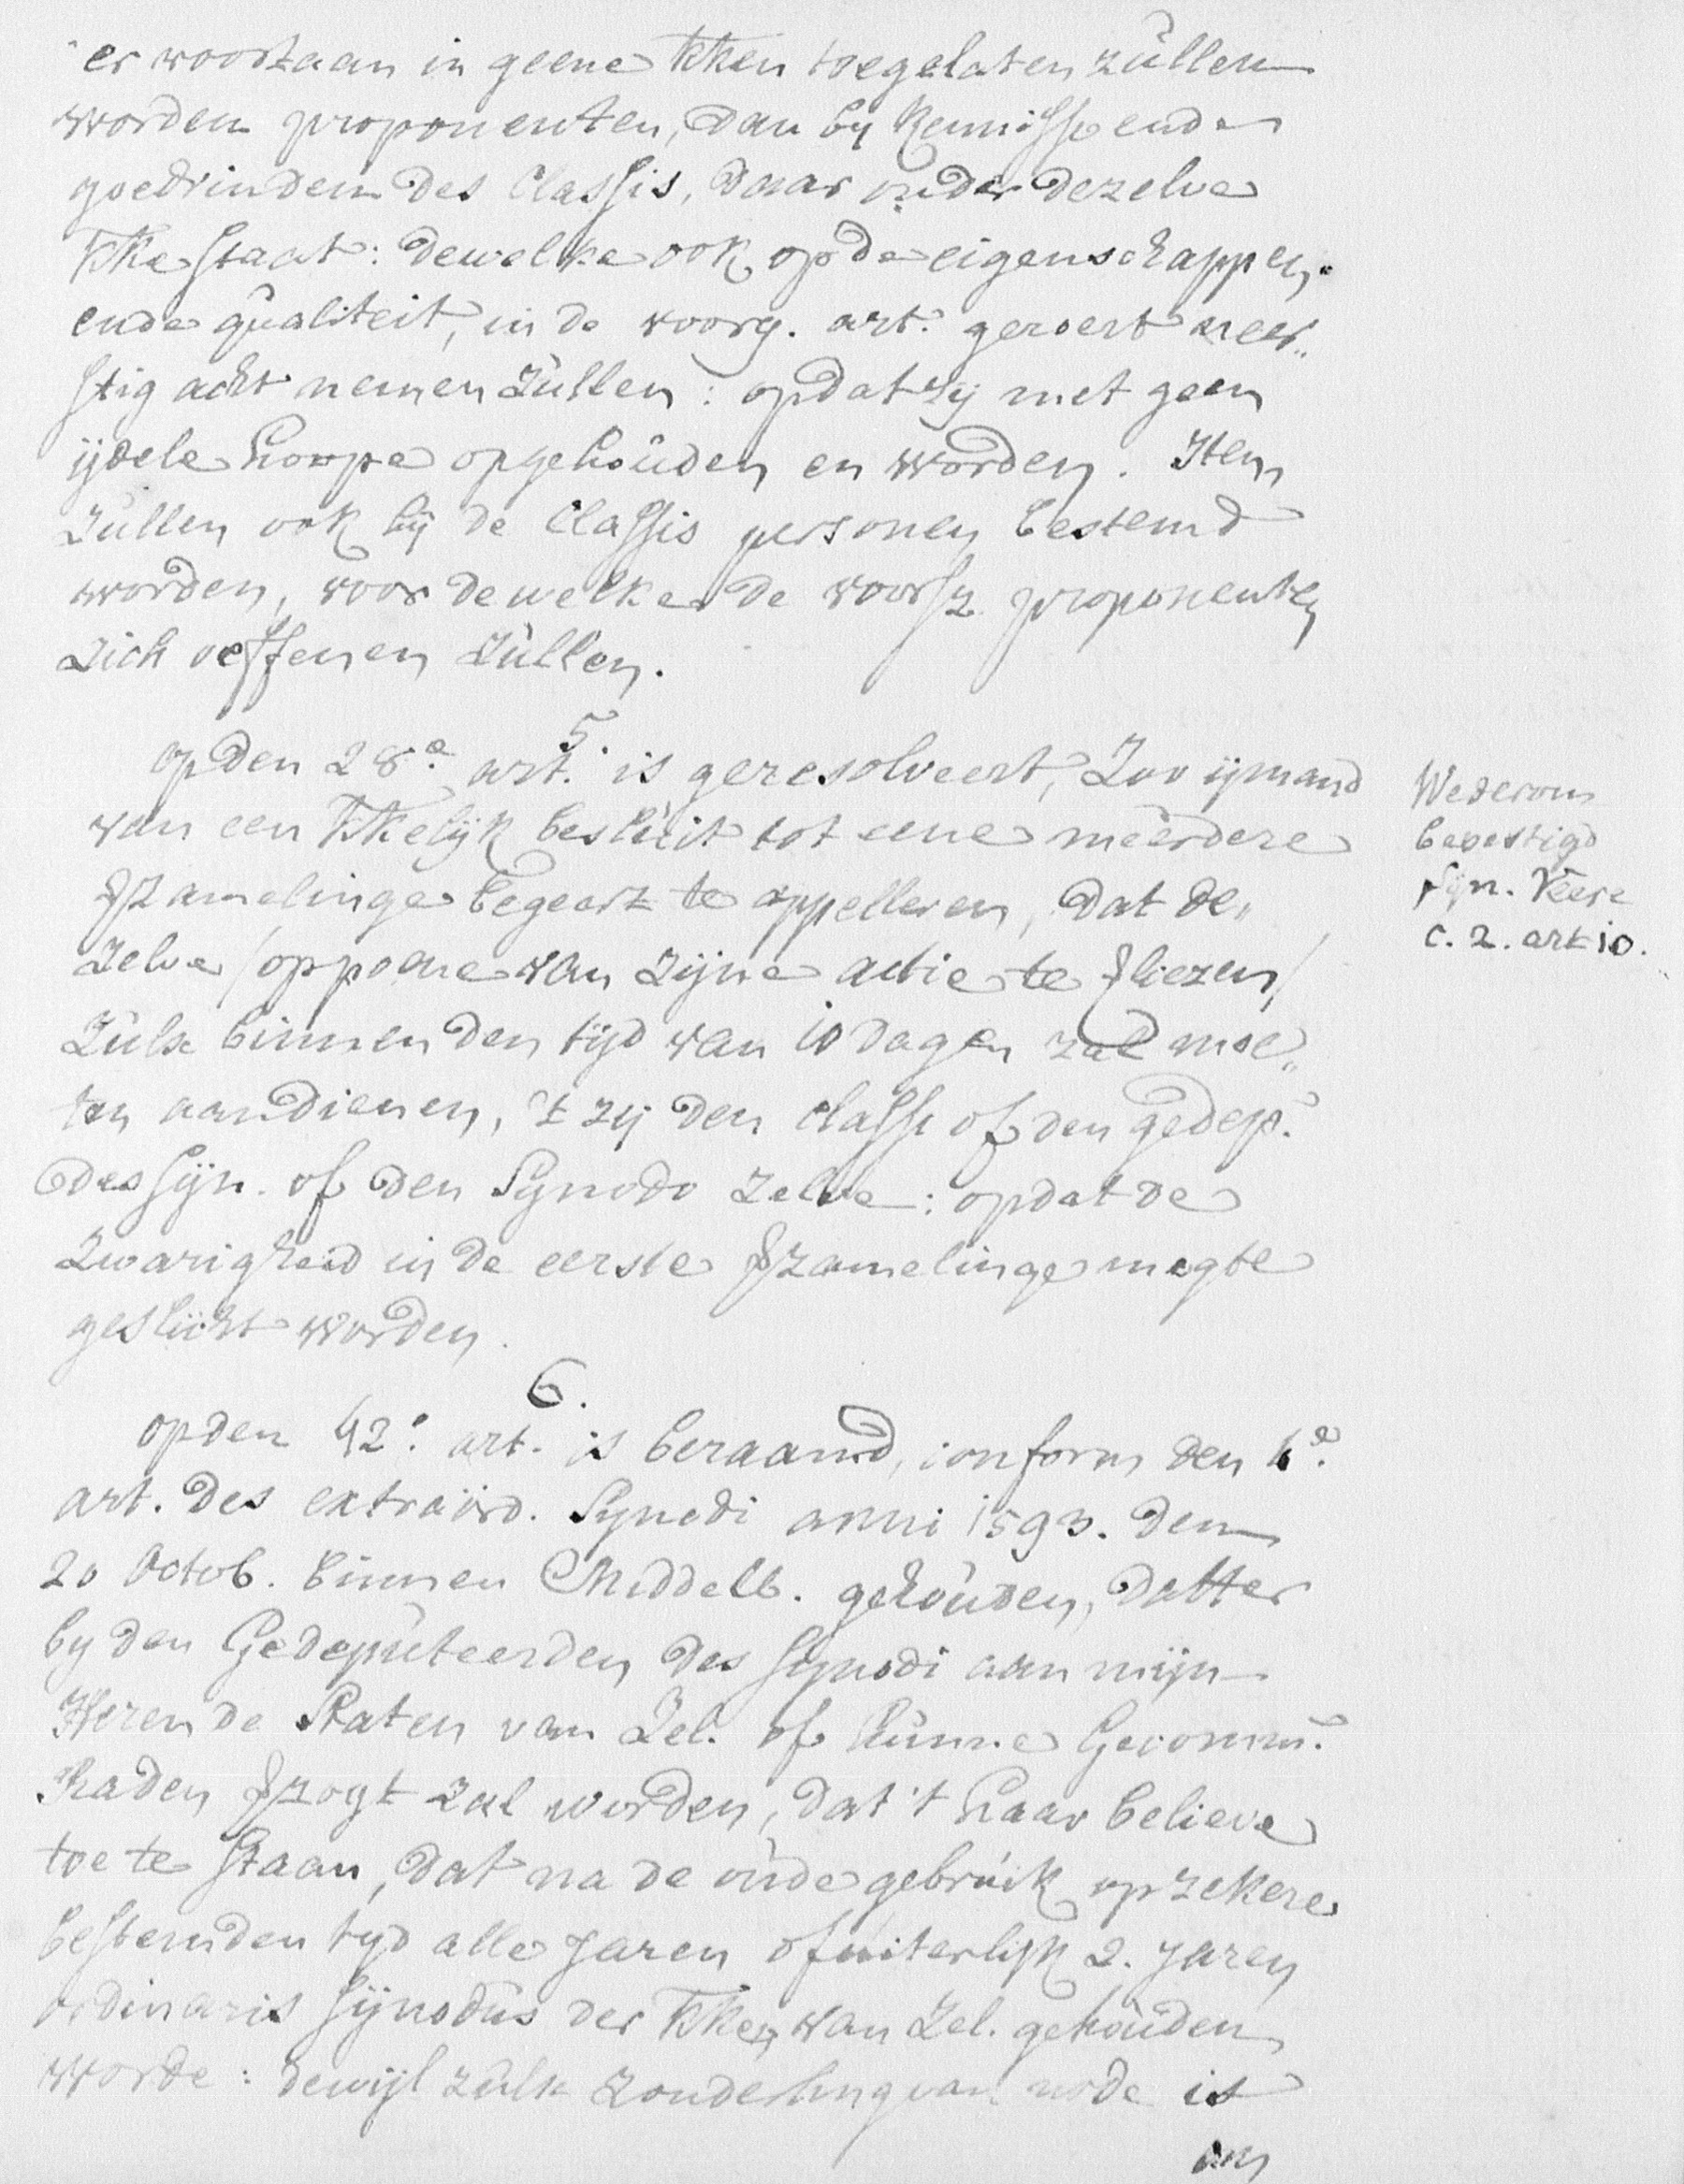 er voortaan in geene kken toegelaten zullen
worden proponenten, dan by kennisse ende
goedvinden des Classis, daar onder dezelve
kke staat: dewelke ook op de eigenschappen
ende qualiteit, in de voorg. art. geroert neer„
stig acht nemen zullen: opdat zij met geen
ijdele hoope opgehouden en worden. Item
zullen ook bij de Classis personen bestemd
worden, voor dewelke de voorsz. proponenten
zich oeffenen zullen.
5.
Op den 28e art. is geresolveert, Zoo ijmand
van een kkelijk besluit tot eene meerdere
vzamelinge begeert te appelleren, dat de„
zelve /op poene van zijne actie te vliezen/
zulx binnen den tijd van 10 dagen zal moe„
ten aandienen, 't zij den classi of den gedep.
des Syn. of den Synodo zelve: opdat de
zwarigheid in de eerste vzamelinge mogte
geslicht worden.
Wederom
bevestigd
Syn. Veere
c. 2. art 10.
6.
Op den 42e art. is beraamd, conform den 6e
art. des extraörd. Synodi anni 1593. den
20 Octob. binnen Middelb. gehouden, datter
by den Gedeputeerden des Synodi aan mijn
Heren de Staten van Zel. of hunne Gecomm.
Raden vzogt zal worden, dat 't haar believe
toe te staan, dat na de oude gebruik op zekere
bestemden tyd alle Jaren of uiterlijk 2. Jaren
ordinaris Synodus der kken van Zel. gehouden
worde: dewijl zulx zonderling van node is
om